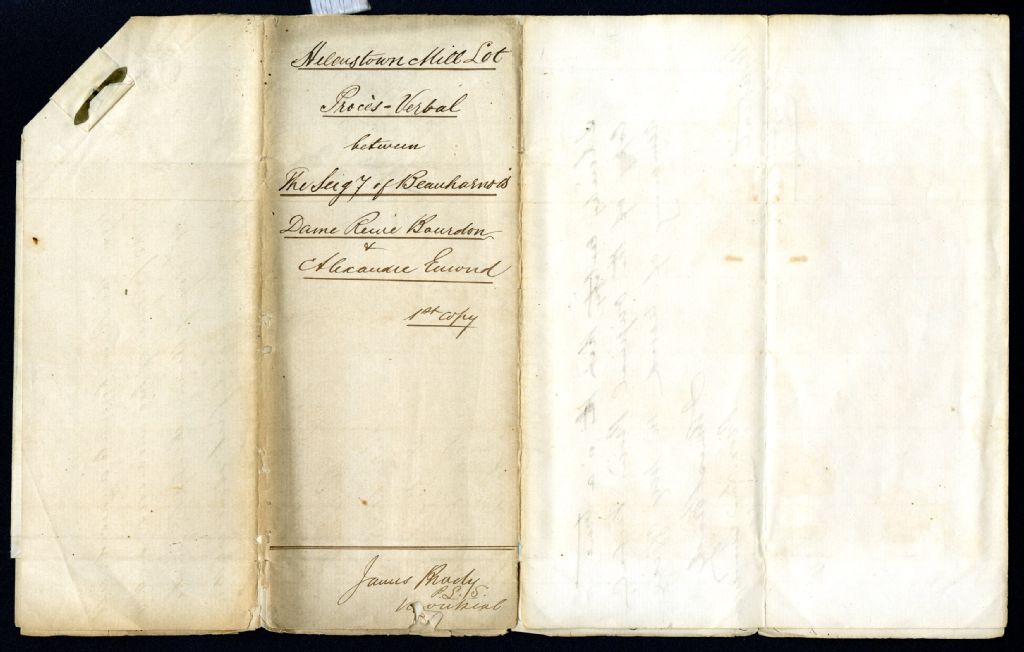 Helenstown Mill Lot
Procès-Verbal
between
The Seigy of Beauharnois
Dame Reine Bourdon
&
Alexandre Emond
1st copy
James Brady
P.L.S.
Montreal